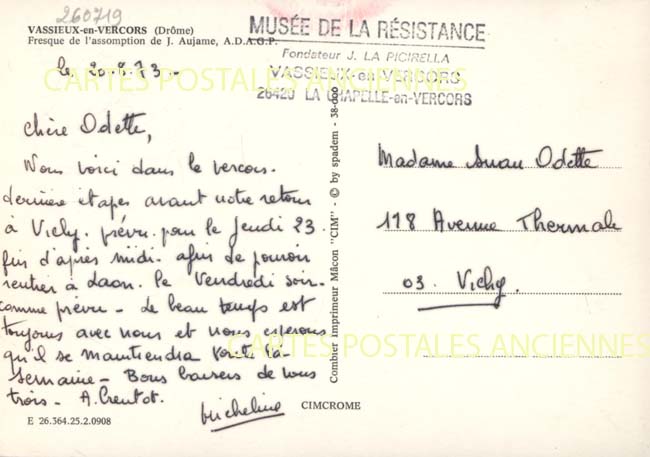 260719
VASSIEUX-en-VERCORS (Drôme)
Fresque de l'assomption de J. Aujame, A.D.A.G.P.
MUSÉE DE LA RÉSISTANCE
Fondateur J. LA PICIRELLA
VASSIEUX-en-VERCORS
26420 LA CHAPELLE-en-VERCORS
CARTES POSTALES ANCIENNES
le 20-8-73-
Chère Odette,
Nous voici dans le vercors.
dernière étapes avant notre retour
à Vichy. prévu pour le Jeudi 23.
fin d'après midi. afin de pouvoir
rentrer à Laon. le Vendredi soir.
comme prévu - Le beau temps est
toujours avec nous et nous esperons
qu'il se maintiendra toute la
semaine - Bons baisers de nous
trois - A.
Micheline
E 26.364.25.2.0908
Combier imprimeur Mâcon "CIM" - © by spadem - 38-000
CIMCROME
Madame Odette
118 Avenue Thermale
03. Vichy.
CARTES POSTALES ANCIENNES